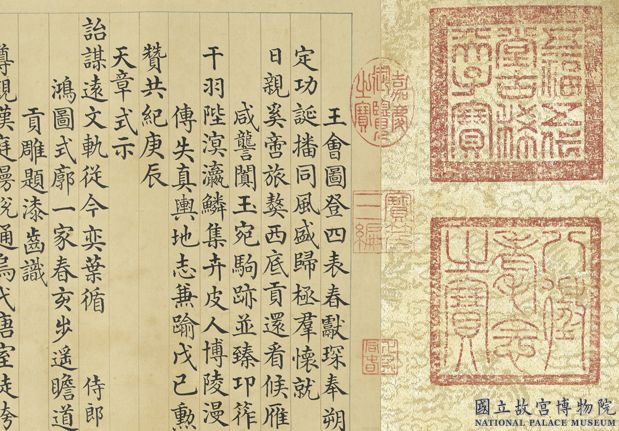 五福五代
堂古稀
天子寶
八徵
耄念
之寶
嘉慶
御覽
之寶
寶笈
三編
王會圖登四表春獻琛奉朔
定功誕播同風盛歸極羣懷就
日親奚啻旅獒西底貢還看候雁
咸讋闐玉宛駒跡並臻卭筰
干羽陛溟瀛鱗集卉皮人博陵漫
傳失真輿地志兼踰戊己勲
贊共紀庚辰
天章式示
詒謀遠文軌從今奕葉循 侍郎
鴻圖式廓一家春亥步遥瞻道
貢雕題漆齒識
尊親漢庭曼倪通烏弋唐室徒夸
國立故宮博物院
NATIONAL PALACE MUSEUM